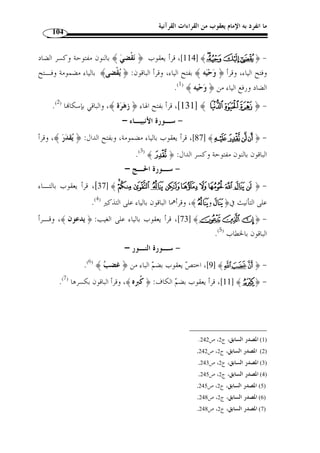 ما انفرد به الإمام يعقوب من القراءات القرآنية
104
- ﴿ يُقْضَىٰ إِلَيْكَ وَحْيُهُ ﴾ [114]، قرأ يعقوب ﴿ نَقْضِيَ ﴾ بالنون مفتوحة وكسر الضاد
وفتح الياء، وقرأ ﴿ وَحْيَه ﴾ بفتح الياء، وقرأ الباقون: ﴿ يُقْضَى ﴾ بالياء مضمومة وفتح
الضاد ورفع الياء من ﴿ وَحْيُه ﴾ (1).
- ﴿ زَهْرَةَ الْحَيَوٰةِ الدُّنْيَا ﴾ [131]، قرأ بفتح الهاء ﴿ زَهَرَة ﴾، والباقي بإسكانها (2).
- سورة الأنبياء -
- ﴿ أَن لَّن نَّقْدِرَ عَلَيْهِ ﴾ [87]، قرأ يعقوب بالياء مضمومة، وبفتح الدال: ﴿ يُقدَرَ ﴾، وقرأ
الباقون بالنون مفتوحة وكسر الدال: ﴿ نَّقْدِرَ ﴾ (3).
- سورة الحج -
- ﴿ لَن يَنَالَ اللَّهَ لُحُومُهَا وَلَا دِمَاؤُهَا وَلَٰكِن يَنَالُهُ التَّقْوَىٰ مِنكُمْ ﴾ [37]، قرأ يعقوب بالتاء
على التأنيث في ﴿ يَنَالَ ﴾ و﴿ يَنَالُهُ ﴾، وقرأهما الباقون بالياء على التذكير (4).
- ﴿ إِنَّ الَّذِينَ تَدْعُونَ ﴾ [73]، قرأ يعقوب بالياء على الغيب: ﴿ يدعون ﴾، وقرأ
الباقون بالخطاب (5).
- سورة النور -
- ﴿ أَنَّ غَضَبَ اللَّهِ ﴾ [9]، اختصّ يعقوب بضمّ الباء من ﴿ غضبُ ﴾ (6).
- ﴿ كِبْرَهُ ﴾ [11]، قرأ يعقوب بضمّ الكاف: ﴿ كُبره ﴾، وقرأ الباقون بكسرها (7).
(1) المصدر السابق، ج2، ص242.
(2) المصدر السابق، ج2، ص242.
(3) المصدر السابق، ج2، ص243.
(4) المصدر السابق، ج2، ص245.
(5) المصدر السابق، ج2، ص245.
(6) المصدر السابق، ج2، ص248.
(7) المصدر السابق، ج2، ص248.